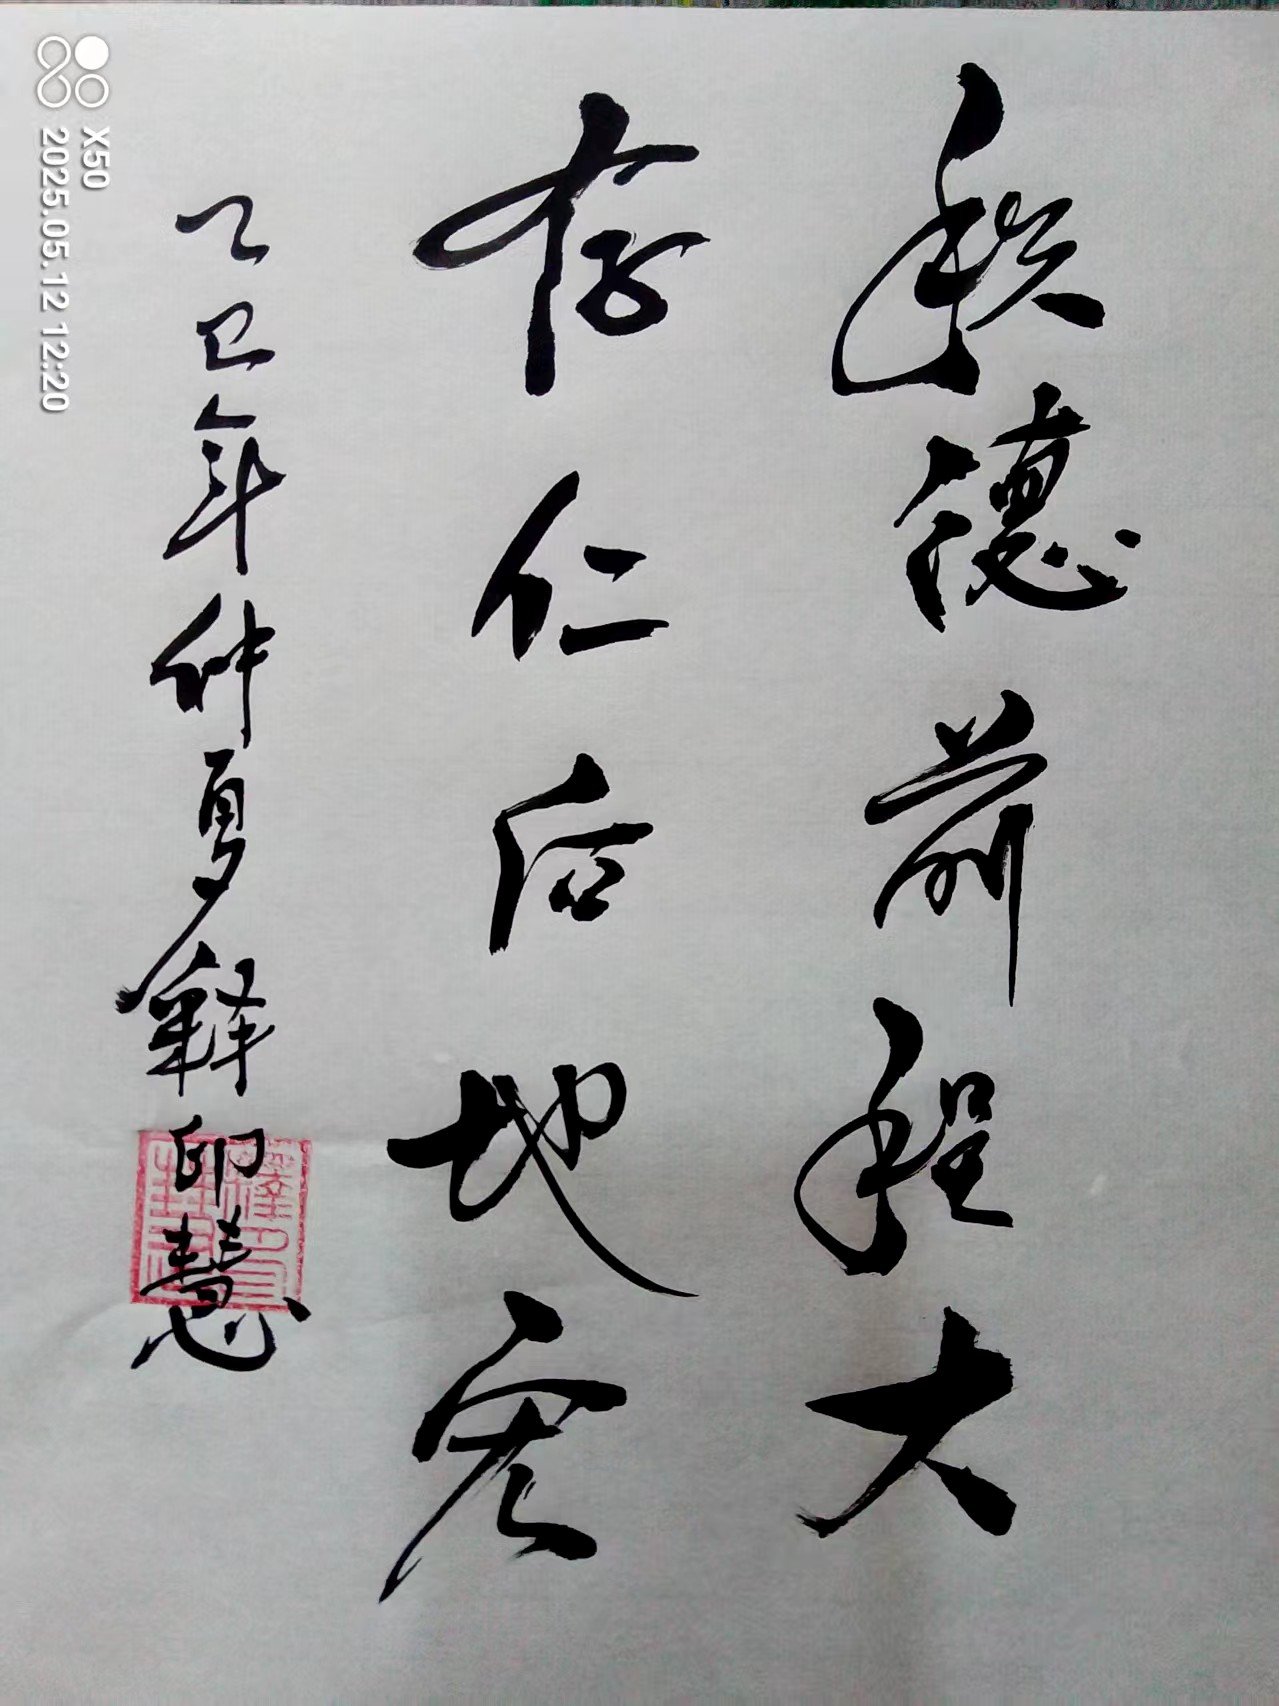 积德前程大
存仁后地宽
乙巳年仲夏释印慧
X50
2025.05.12 12:20